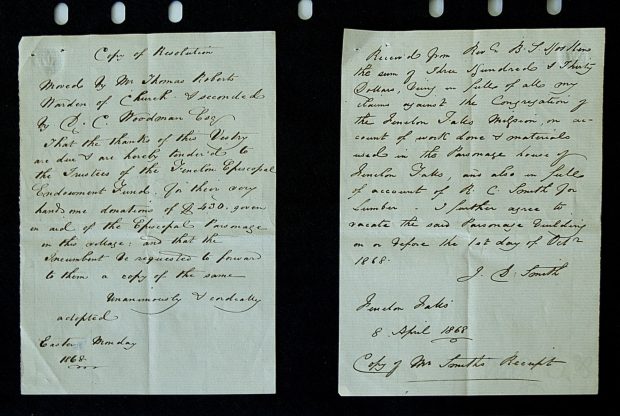 Copy of Resolution
Moved by Mr Thomas Roberts
Warden of Church & seconded
by C. Woodman Esq
That the thanks of this Vestry
are due & are hereby tender'd to
the Trustees of the Fenelon Episcopal
Endowment Fund. for their very
handsome donations of $430. given
in aid of the Episcopal Parsonage
in this village: and that the
Incumbent be requested to forward
to them a copy of the same
Unanimously & cordially
adopted
Easter Monday
1868.
Received from Rev B. S.
the sum of Three Hundred & Thirty
Dollars, being in full of all my
claims against the Congregation of
the Fenelon Falls Mission, on ac-
count of work done & materials
used in the Parsonage house of
Fenelon Falls, and also in full
of account of R. C. Smith for
Lumber I further agree to
vacate the said Parsonage building
on or before the 1st day of Octr
1868.
J. D. Smith
Fenelon Falls
8 April 1868
Copy of Mr Smith's Receipt